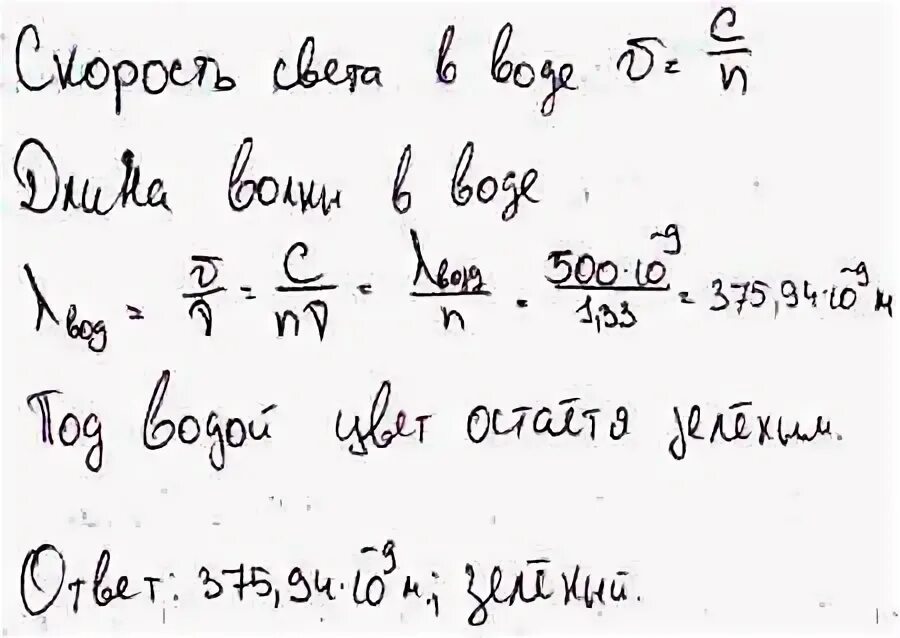 Скорость света в воде υ = c/n
Длина волны в воде
λвод = υ/ν = c/nν = λвозд/n = 500·10⁻⁹/1,33 = 375,94·10⁻⁹ м
Под водой цвет остаётя зелёным.
Ответ: 375,94·10⁻⁹ м; зелёный.